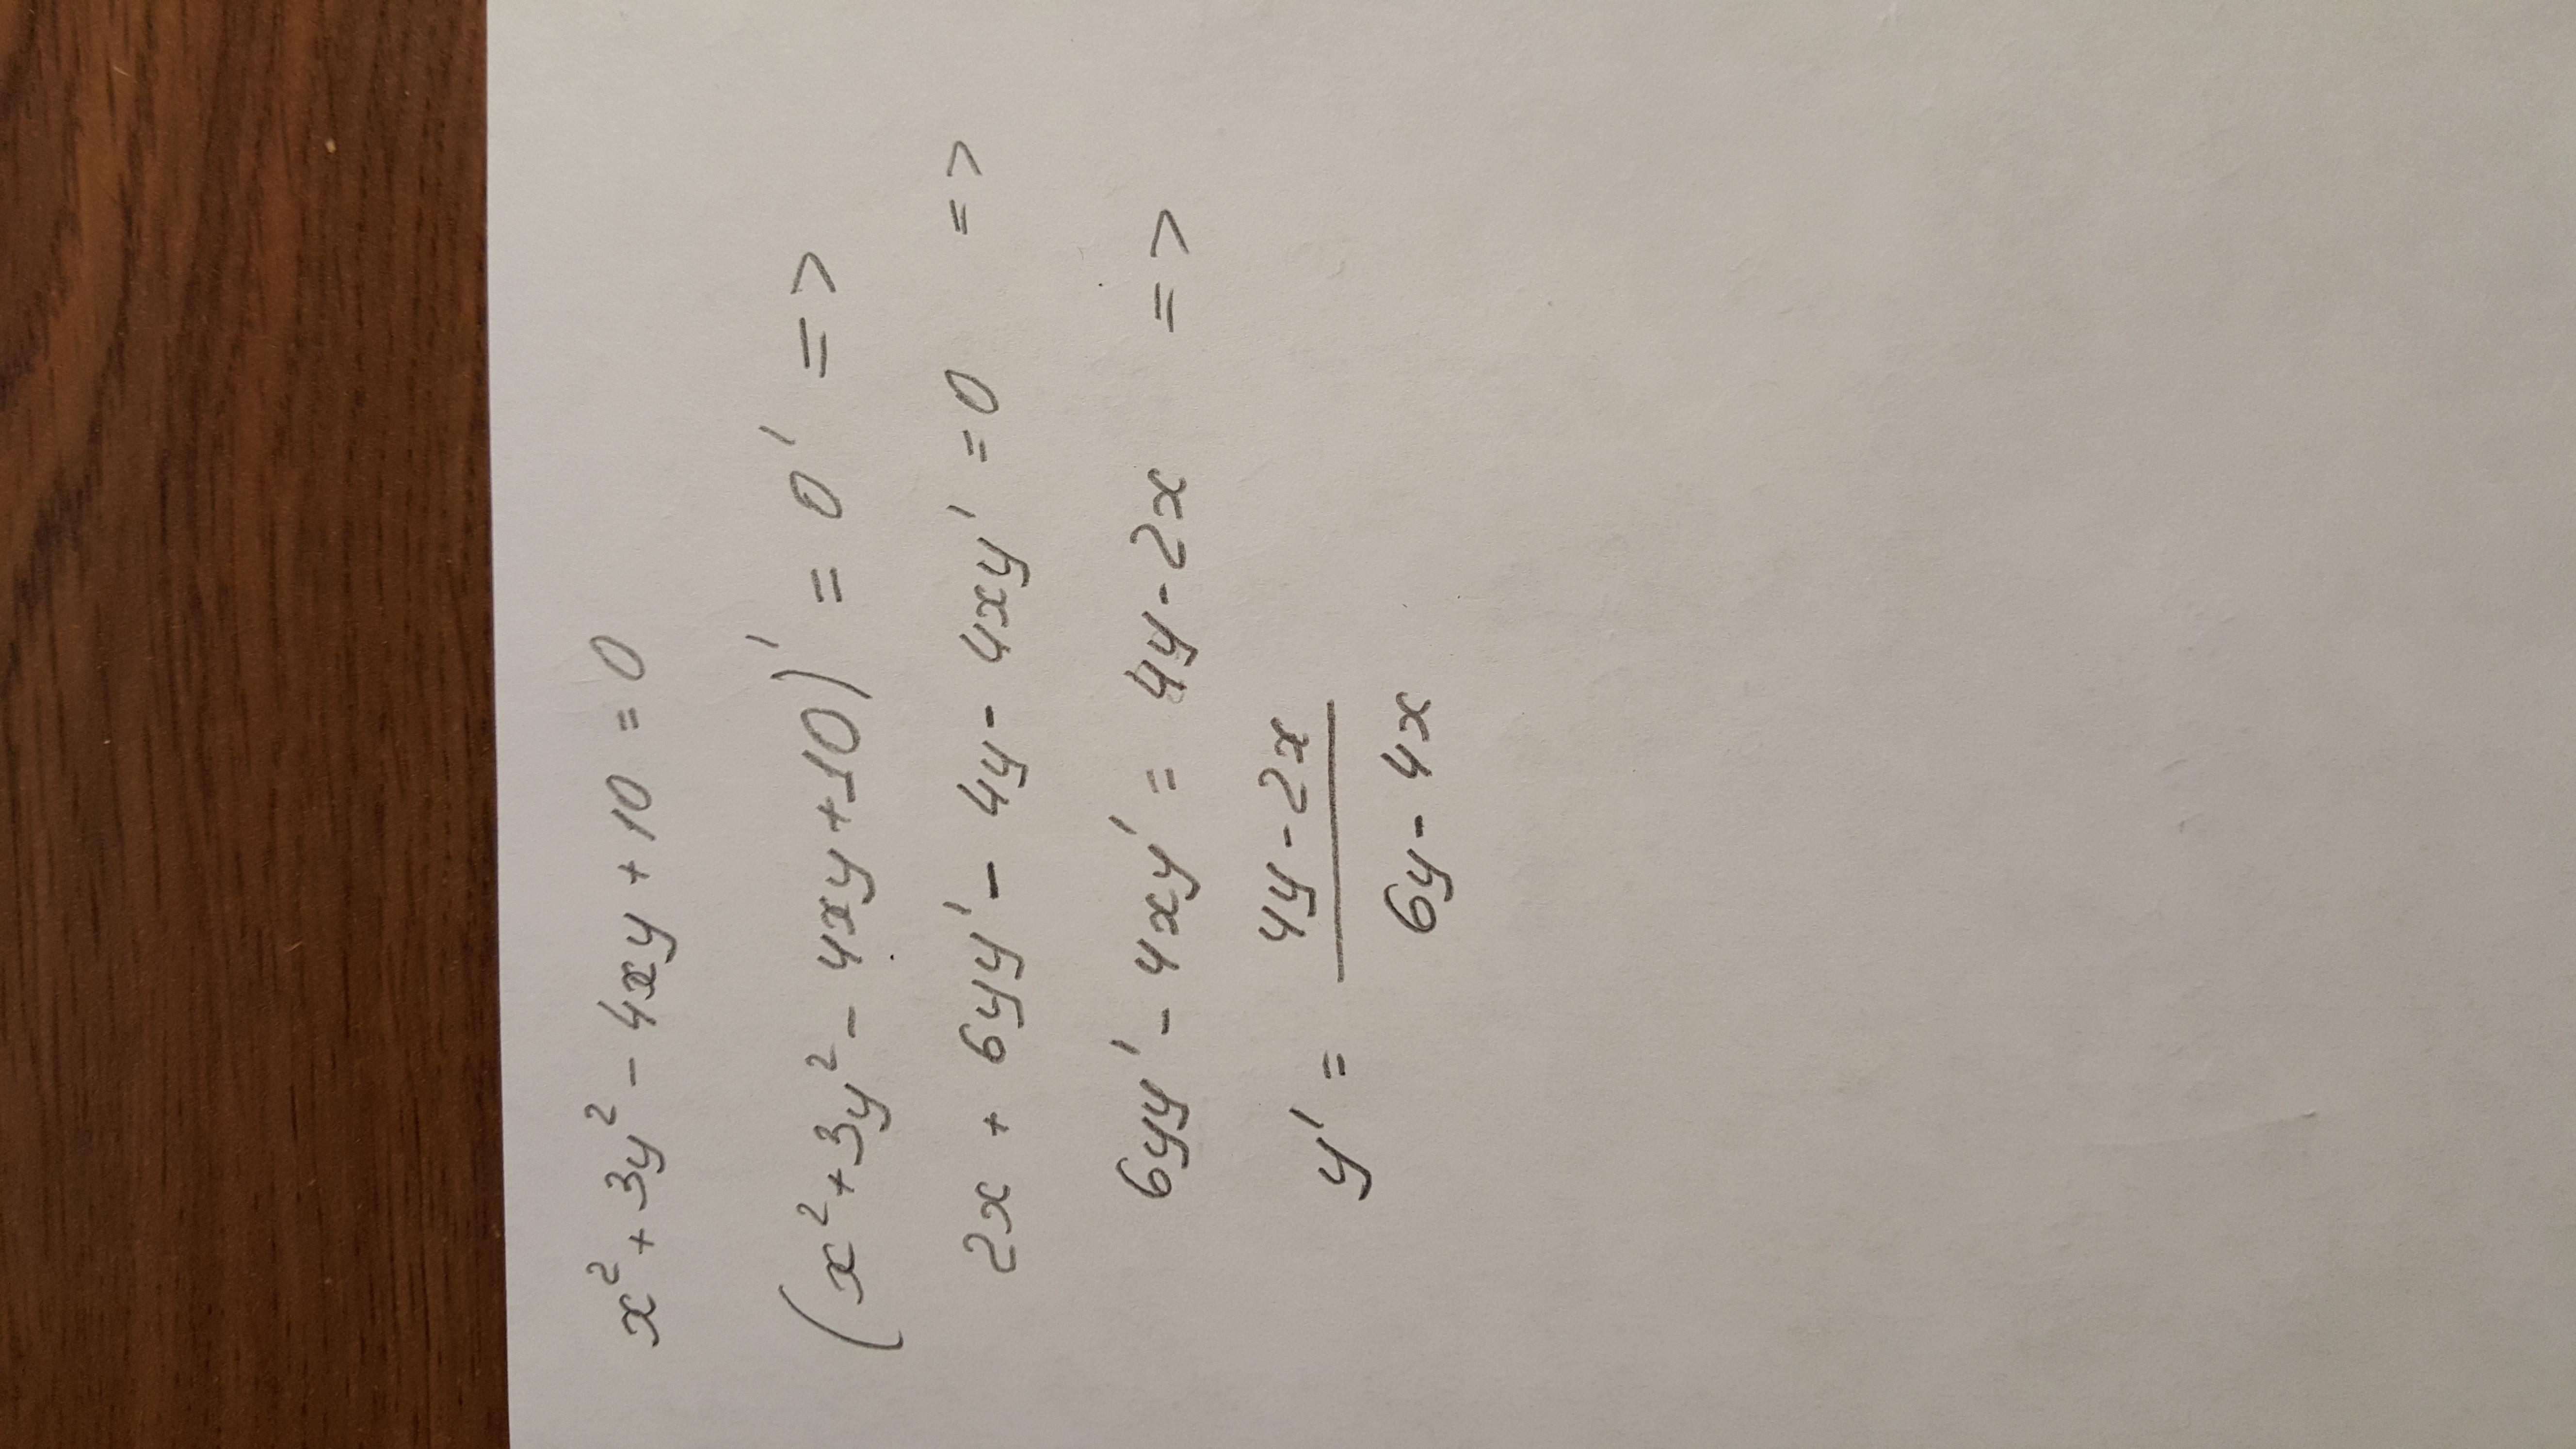 x² + 3y² - 4xy + 10 = 0
(x² + 3y² - 4xy + 10)' = 0' =>
2x + 6yy' - 4y - 4xy' = 0 =>
6yy' - 4xy' = 4y - 2x =>
y' = (4y - 2x) / (6y - 4x)